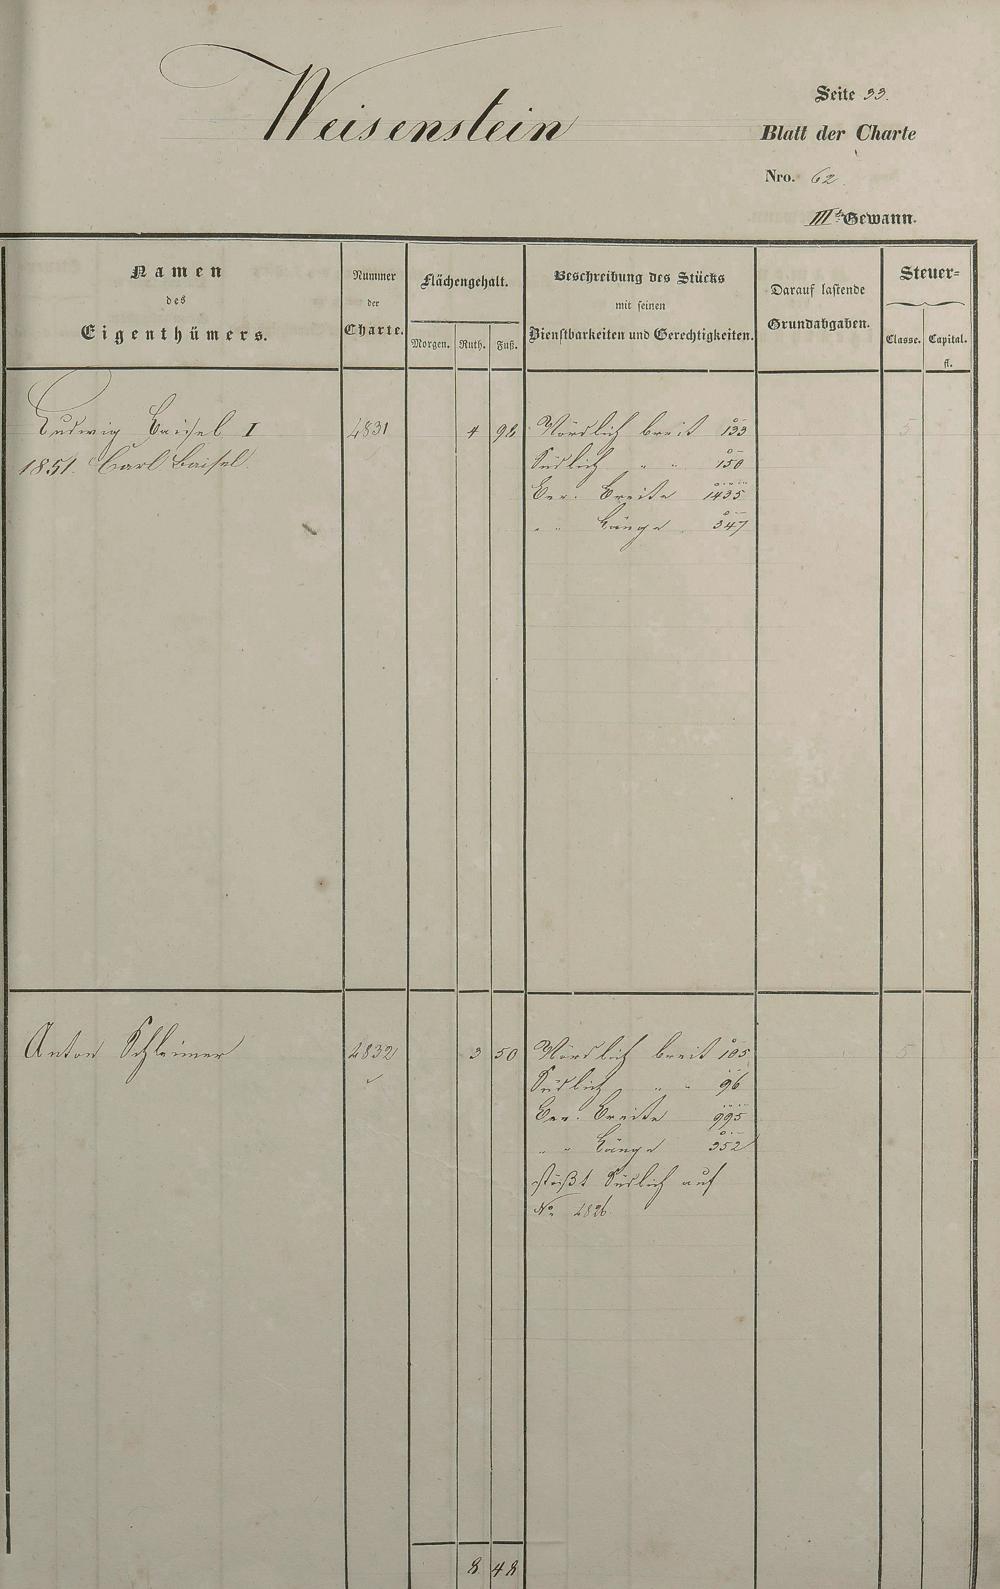 Weisenstein
Seite 33.
Blatt der Charte
Nro. 62.
III. Gewann.
Namen
des
Eigenthümers.
Nummer
der
Charte.
Flächengehalt.
Morgen. Ruth. Fuß.
Beschreibung des Stücks
mit seinen
Dienstbarkeiten und Gerechtigkeiten.
Darauf lastende
Grundabgaben.
Steuer=
Classe. Capital.
fl.
Ludwig Baisel I 4831 4 98 Nördlich breit 133 5
1851. Carl Baisel. Südlich " " 150
Ber. Breite 1435
" " Länge 347
Anton Schleimer 4832 3 50 Nördlich breit 105 5
Südlich " " 96
Ber. Breite 995
" " Länge 352
stößt Südlich auf
No 4826
8 48